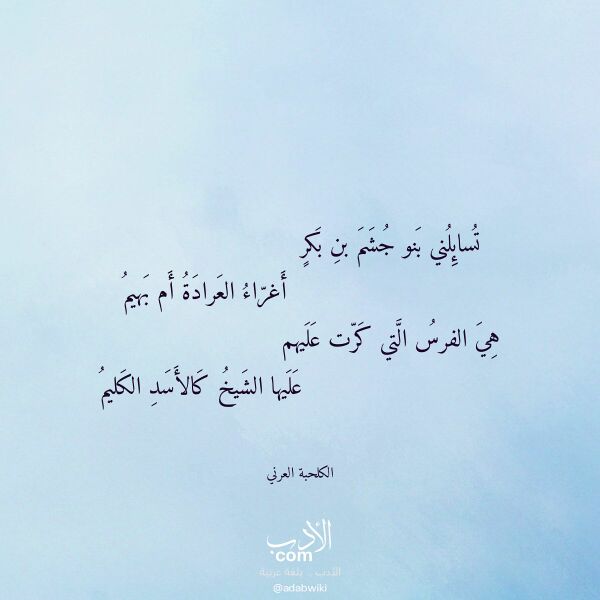 تُسائِلُني بَنو جُشَمَ بنِ بَكرٍ
أَغرّاءُ العَرادَةُ أَم بَهيمُ
هِيَ الفرسُ الَّتي كَرّت عَلَيهم
عَلَيها الشَيخُ كَالأَسَدِ الكَليمُ
الكلحبة العرني
الأدب
com
الأدب .. بلغة عربية
@adabwiki